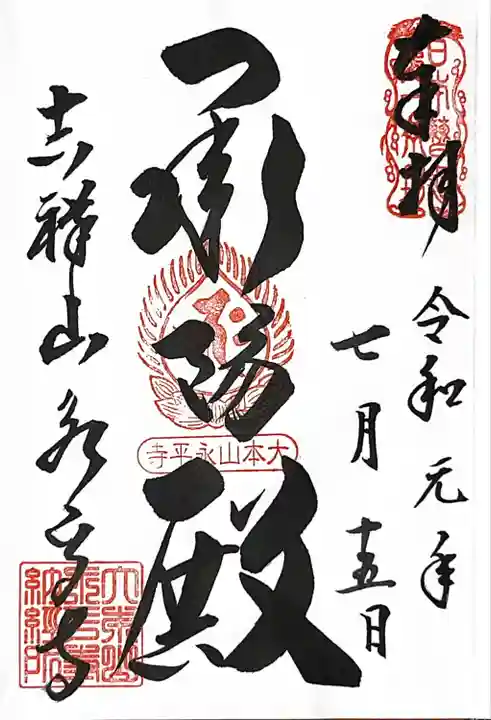 奉拝
令和元年
七月十五日
承陽殿
大本山永平寺
吉祥山永平寺
大本山永平寺納経所